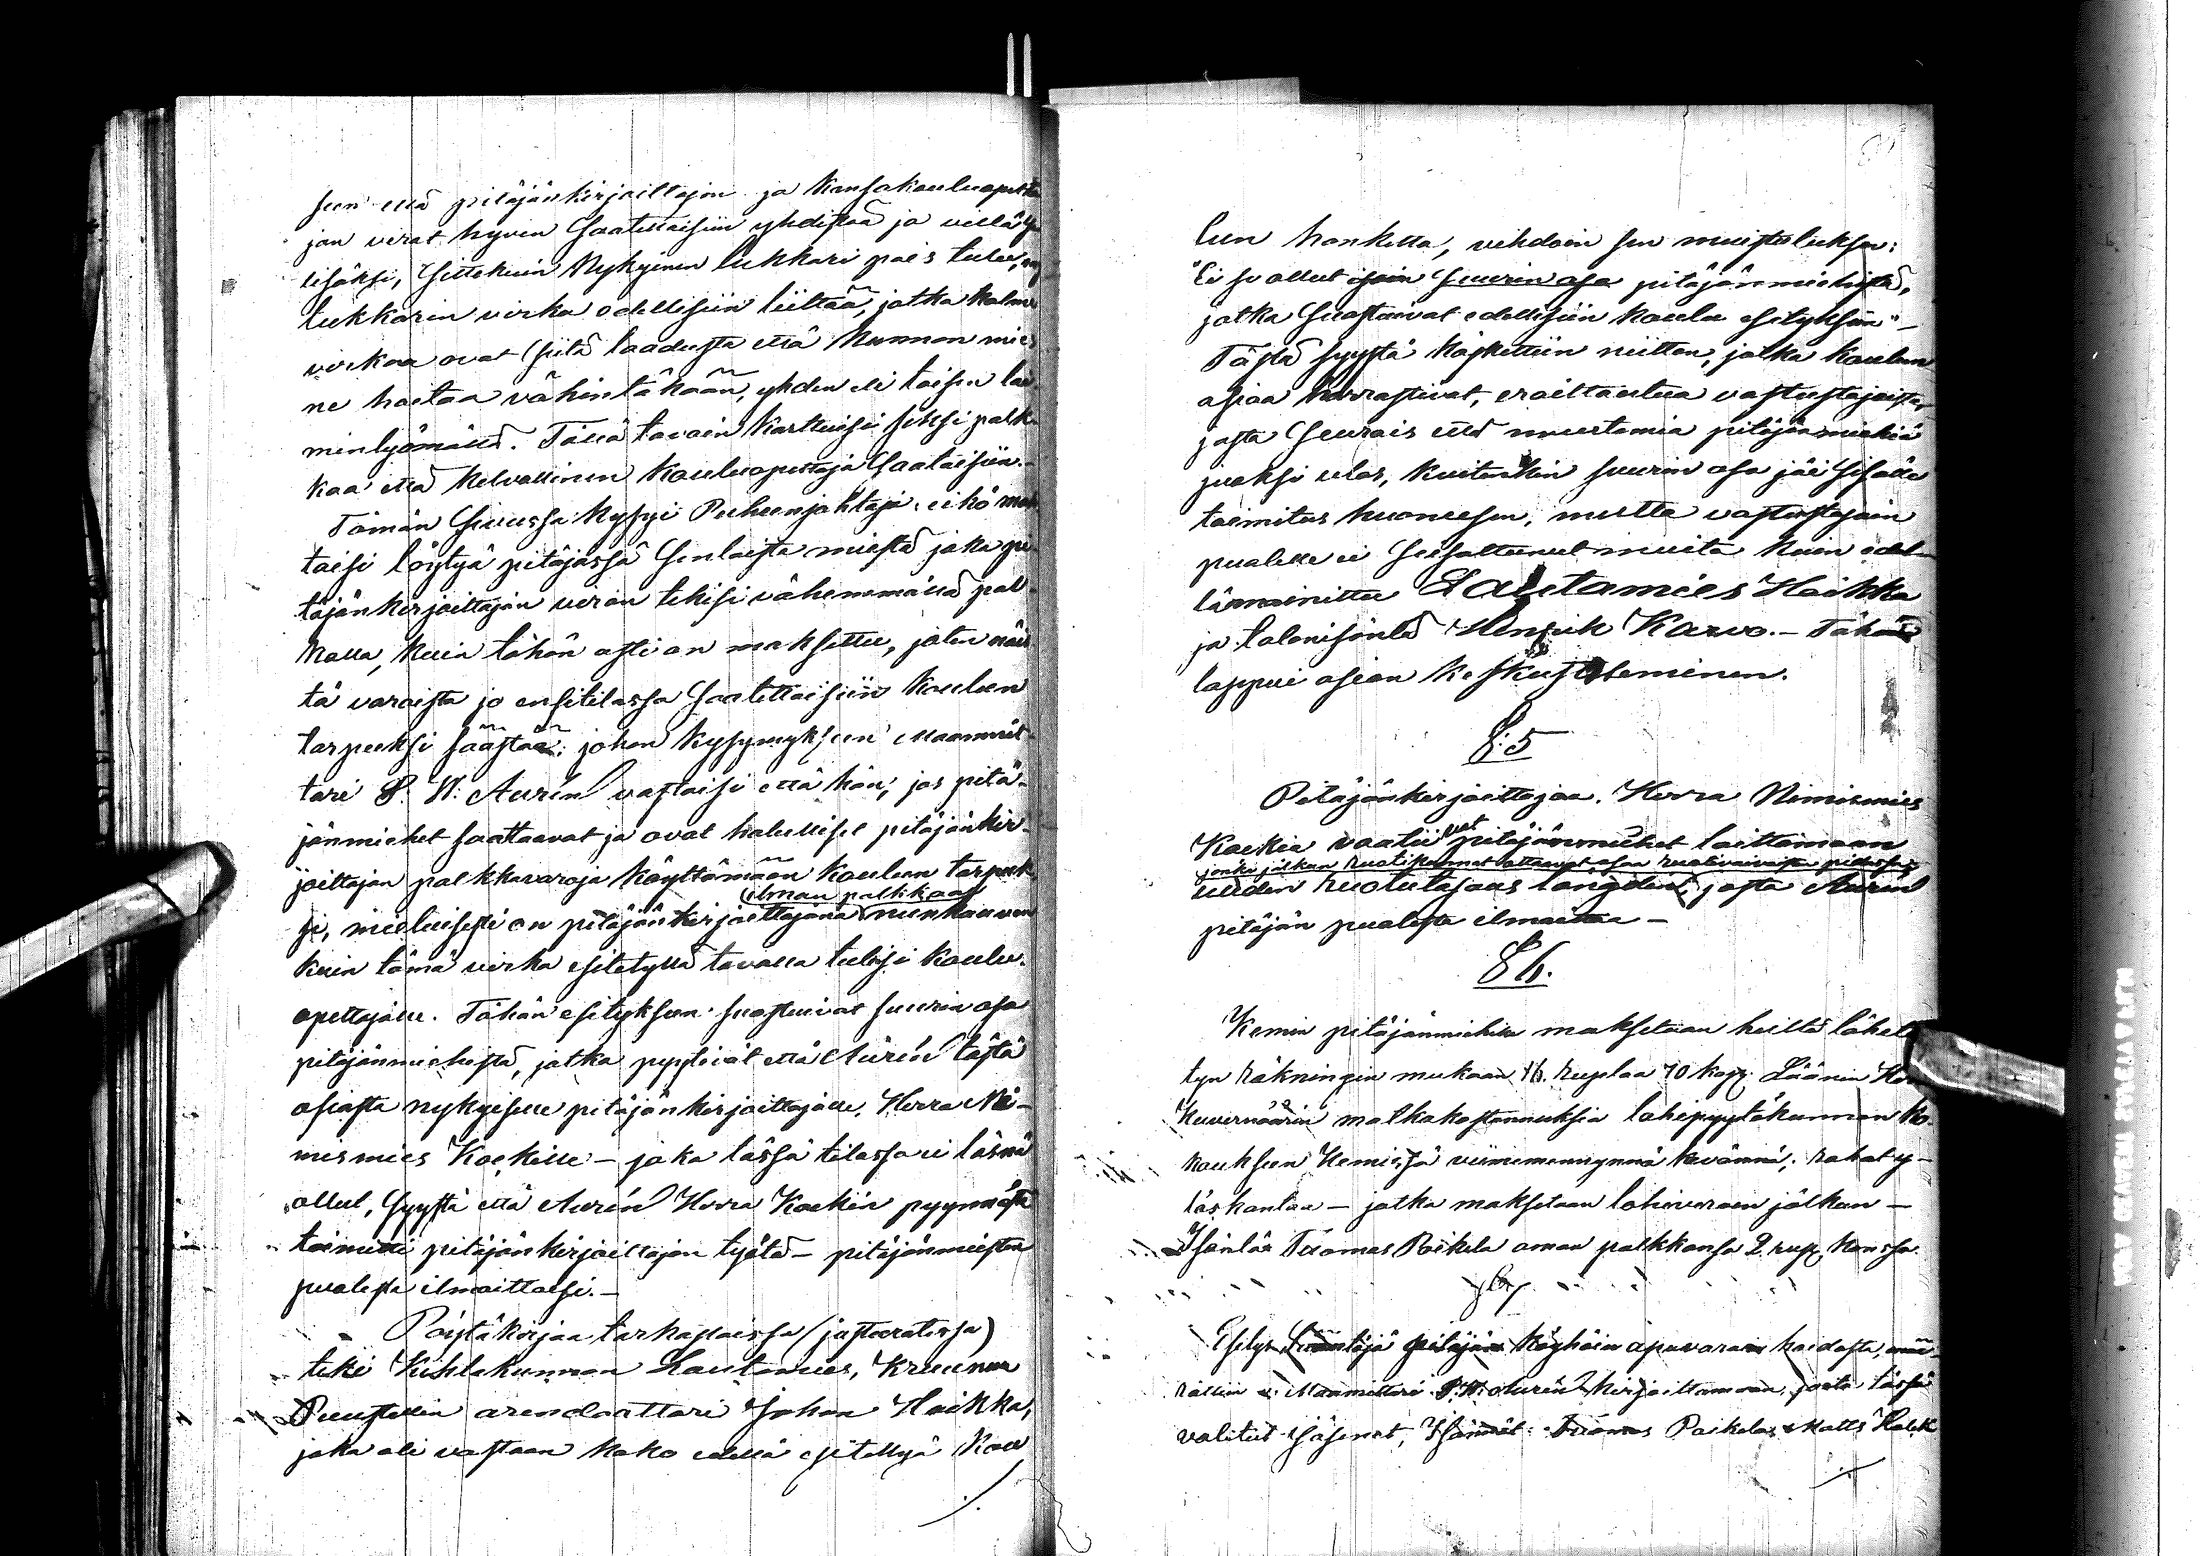 sen että pitäjänkirjoittajan ja kansakouluopetta
jan virat hyvin saatettaisiin yhdistää ja vielä y
lisäksi, sittekuin nykyinen lukkari pois tulee,
lukkarin virka edellisiin liittää, jotka kolme
virkaa ovat siitä laadusta että kunnon mies
ne hoitaa vähintäkään, yhden eli toisen lai-
minlyömättä. Tällä tavoin karttuisi siksi palk-
kaa että kelvollinen kouluopettaja saataisiin.-
Tämän suussa kysyi Puheenjohtaja: eikö muu
taisi löytyä pitäjässä senlaista miestä joka pi-
täjänkirjoittajan viran tekisi vähemmällä pal-
kalla, kuin tähän asti on maksettu, joten näi
tä varoista jo ensitilassa saatettaisiin koulun
tarpeeksi säästää; johon kysymykseen Maanmit-
tari P. W. Aurén vastaisi että hän, jos pitä-
jänmiehet saattaavat ja ovat halulliset pitäjänkir-
joittajan palkkavaroja käyttämään koulun tarpeek
(ilman palkkaa)
si, mieluisesti on pitäjänkirjoittajana niinkauvan
kuin tämä virka esitetyllä tavalla tulisi koulu-
opettajalle. Tähän esitykseen suostuivat suurin osa
pitäjänmiehistä, jotka pyysivät että Aurén tästä
asiasta nykyiselle pitäjänkirjoittajalle, Herra Ni-
mismies Koekille – joka tässä tilassa ei läsnä
ollut, syystä että Aurén Herra Koekin pyynnöstä
toimitti pitäjänkirjoittajan työtä – pitäjänmiesten
puolesta ilmoittaisi.–
Pöytäkirjaa tarkastaissa (justeeratessa)
teki Kihlakunnan Lautamies, Kruunun
Puustellin arendaattori Johan Haikka,
joka oli vastaan koko edellä esitettyä Kou
./.
lun hanketta, vihdoin sen muistutuksen:
"Ei se ollut suurin osa pitäjänmiehistä,
jotka suostuivat edellisiin koulu esityksiin" –
Tästä syystä käskettiin niitten, jotka koulun
asiaa harrastivat, eroittautua vastustajoista,
josta seurais että muutamia pitäjänmiehiä
juoksi ulos, kuitenkin suurin osa jäi sisälle
toimitus huoneesen, mutta vastustajain
puolelle ei seisattunut muita kuin edel-
lämainittu Lautamies Haikka
ja talonisäntä Henrik Karvo. – Tähän
loppui asian keskusteleminen.
§.5
Pitäjänkirjoittajaa, Herra Nimismies
Koekia vaativat pitäjänmiehet laittamaan
jonka jälkeen ruotikunnat ottaavat osaa ruotivaivasten pidossa
uuden ruotutasaus längdin, josta Aurén
pitäjän puolesta ilmoittaa –
§ 6.
Kemin pitäjänmiehille maksetaan heiltä lähete
tyn räkningin mukaan 16 ruplaa 70 kop. Läänin Her
Kuvernöörin matkakostannuksia lohipyytäkunnan ko-
koukseen Kemissä viimemennynnä kevännä; rahat y-
löskantaa – jotka maksetaan lohiveroon jälkeen –
Isäntä Tuomas Poikela oman palkkansa 2 rup. kanssa.
§ 7.
Esitys pitäjän köyhäin apuvarain hoidosta, mää-
rättiin Maanmittari P. W. Aurén kirjoittamaan, jota tässä
valitut jäsenet, Isännät: Tuomas Poikela, Matts
./.